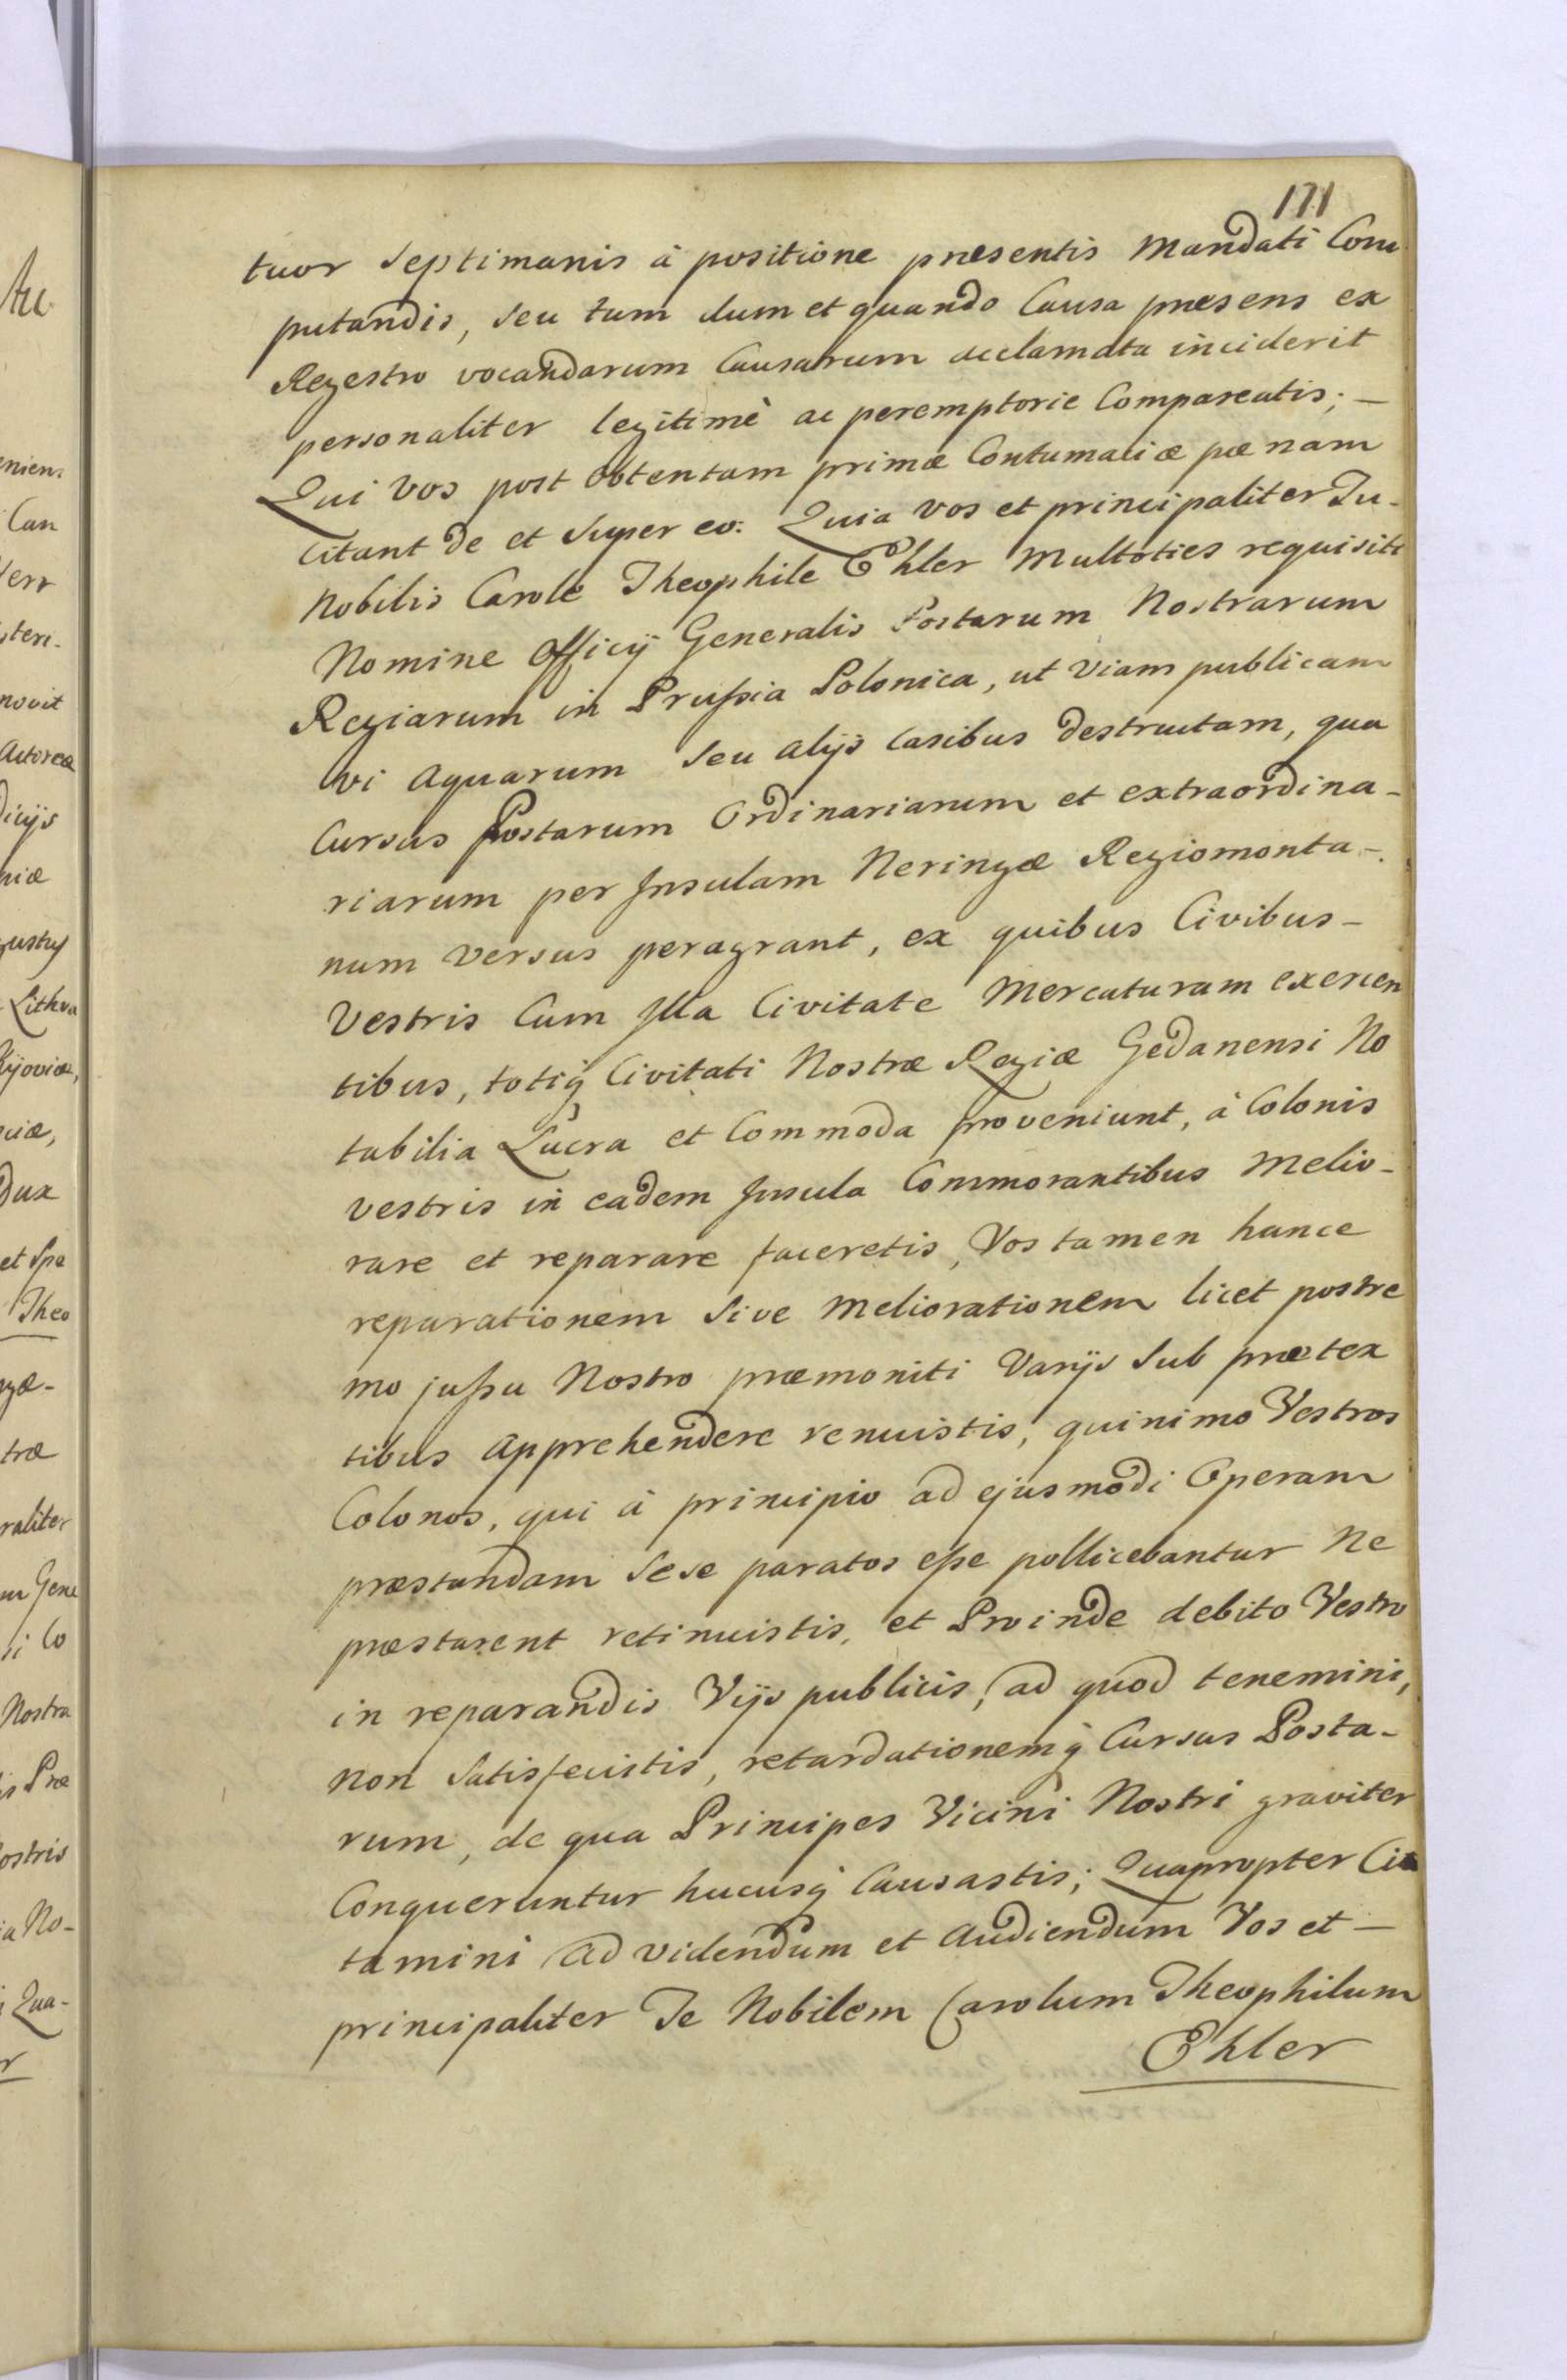 171
tuor Septimanis à positione præsentis Mandati Com
putandis, seu tum dum et quando Causa præsens ex
Regestro vocandarum Causarum acclamata inciderit
personaliter legitimè ac peremptorie Compareatis; –
Qui Vos post obtentam primæ Contumaciæ pœnam
Citant de et super eo: Quia vos et principaliter Tu-
Nobilis Carole Theophile Ehler Multoties requisiti
Nomine Officij Generalis Postarum Nostrarum
Regiarum in Prußia Polonica, ut Viam publicam
vi Aquarum seu alijs Casibus destructam, qua
Cursus Postarum Ordinariarum et extraordina-
riarum per Insulam Neringæ Regiomonta-
num versus peragrant, ex quibus Civibus-
Vestris Cum Illa Civitate Mercaturam exercen
tibus, totiq Civitati Nostræ Regiæ Gedanensi No
tabilia Lucra et Commoda proveniunt, à Colonis
vestris in eadem Insula Commorantibus Melio-
rare et reparare faceretis, Vos tamen hance
reparationem sive Meliorationem licet postre
mo jußu Nostro præmoniti Varijs sub prætex
tibus Apprehendere renuistis, quinimo Vestros
Colonos, qui à principio ad ejusmodi Operam
præstandam sese paratos eße pollicebantur Ne
præstarent retinuistis, et Proinde debito Vestro
in reparandis Vijs publicis, ad quod tenemini,
non Satisfecistis, retardationemq Cursus Posta-
rum, de qua Principes Vicini Nostri graviter
Conqueruntur hucusq Causastis; Quapropter Ci
tamini ad videndum et Audiendum Vos et –
principaliter Te Nobilem Carolum Theophilum
Ehler